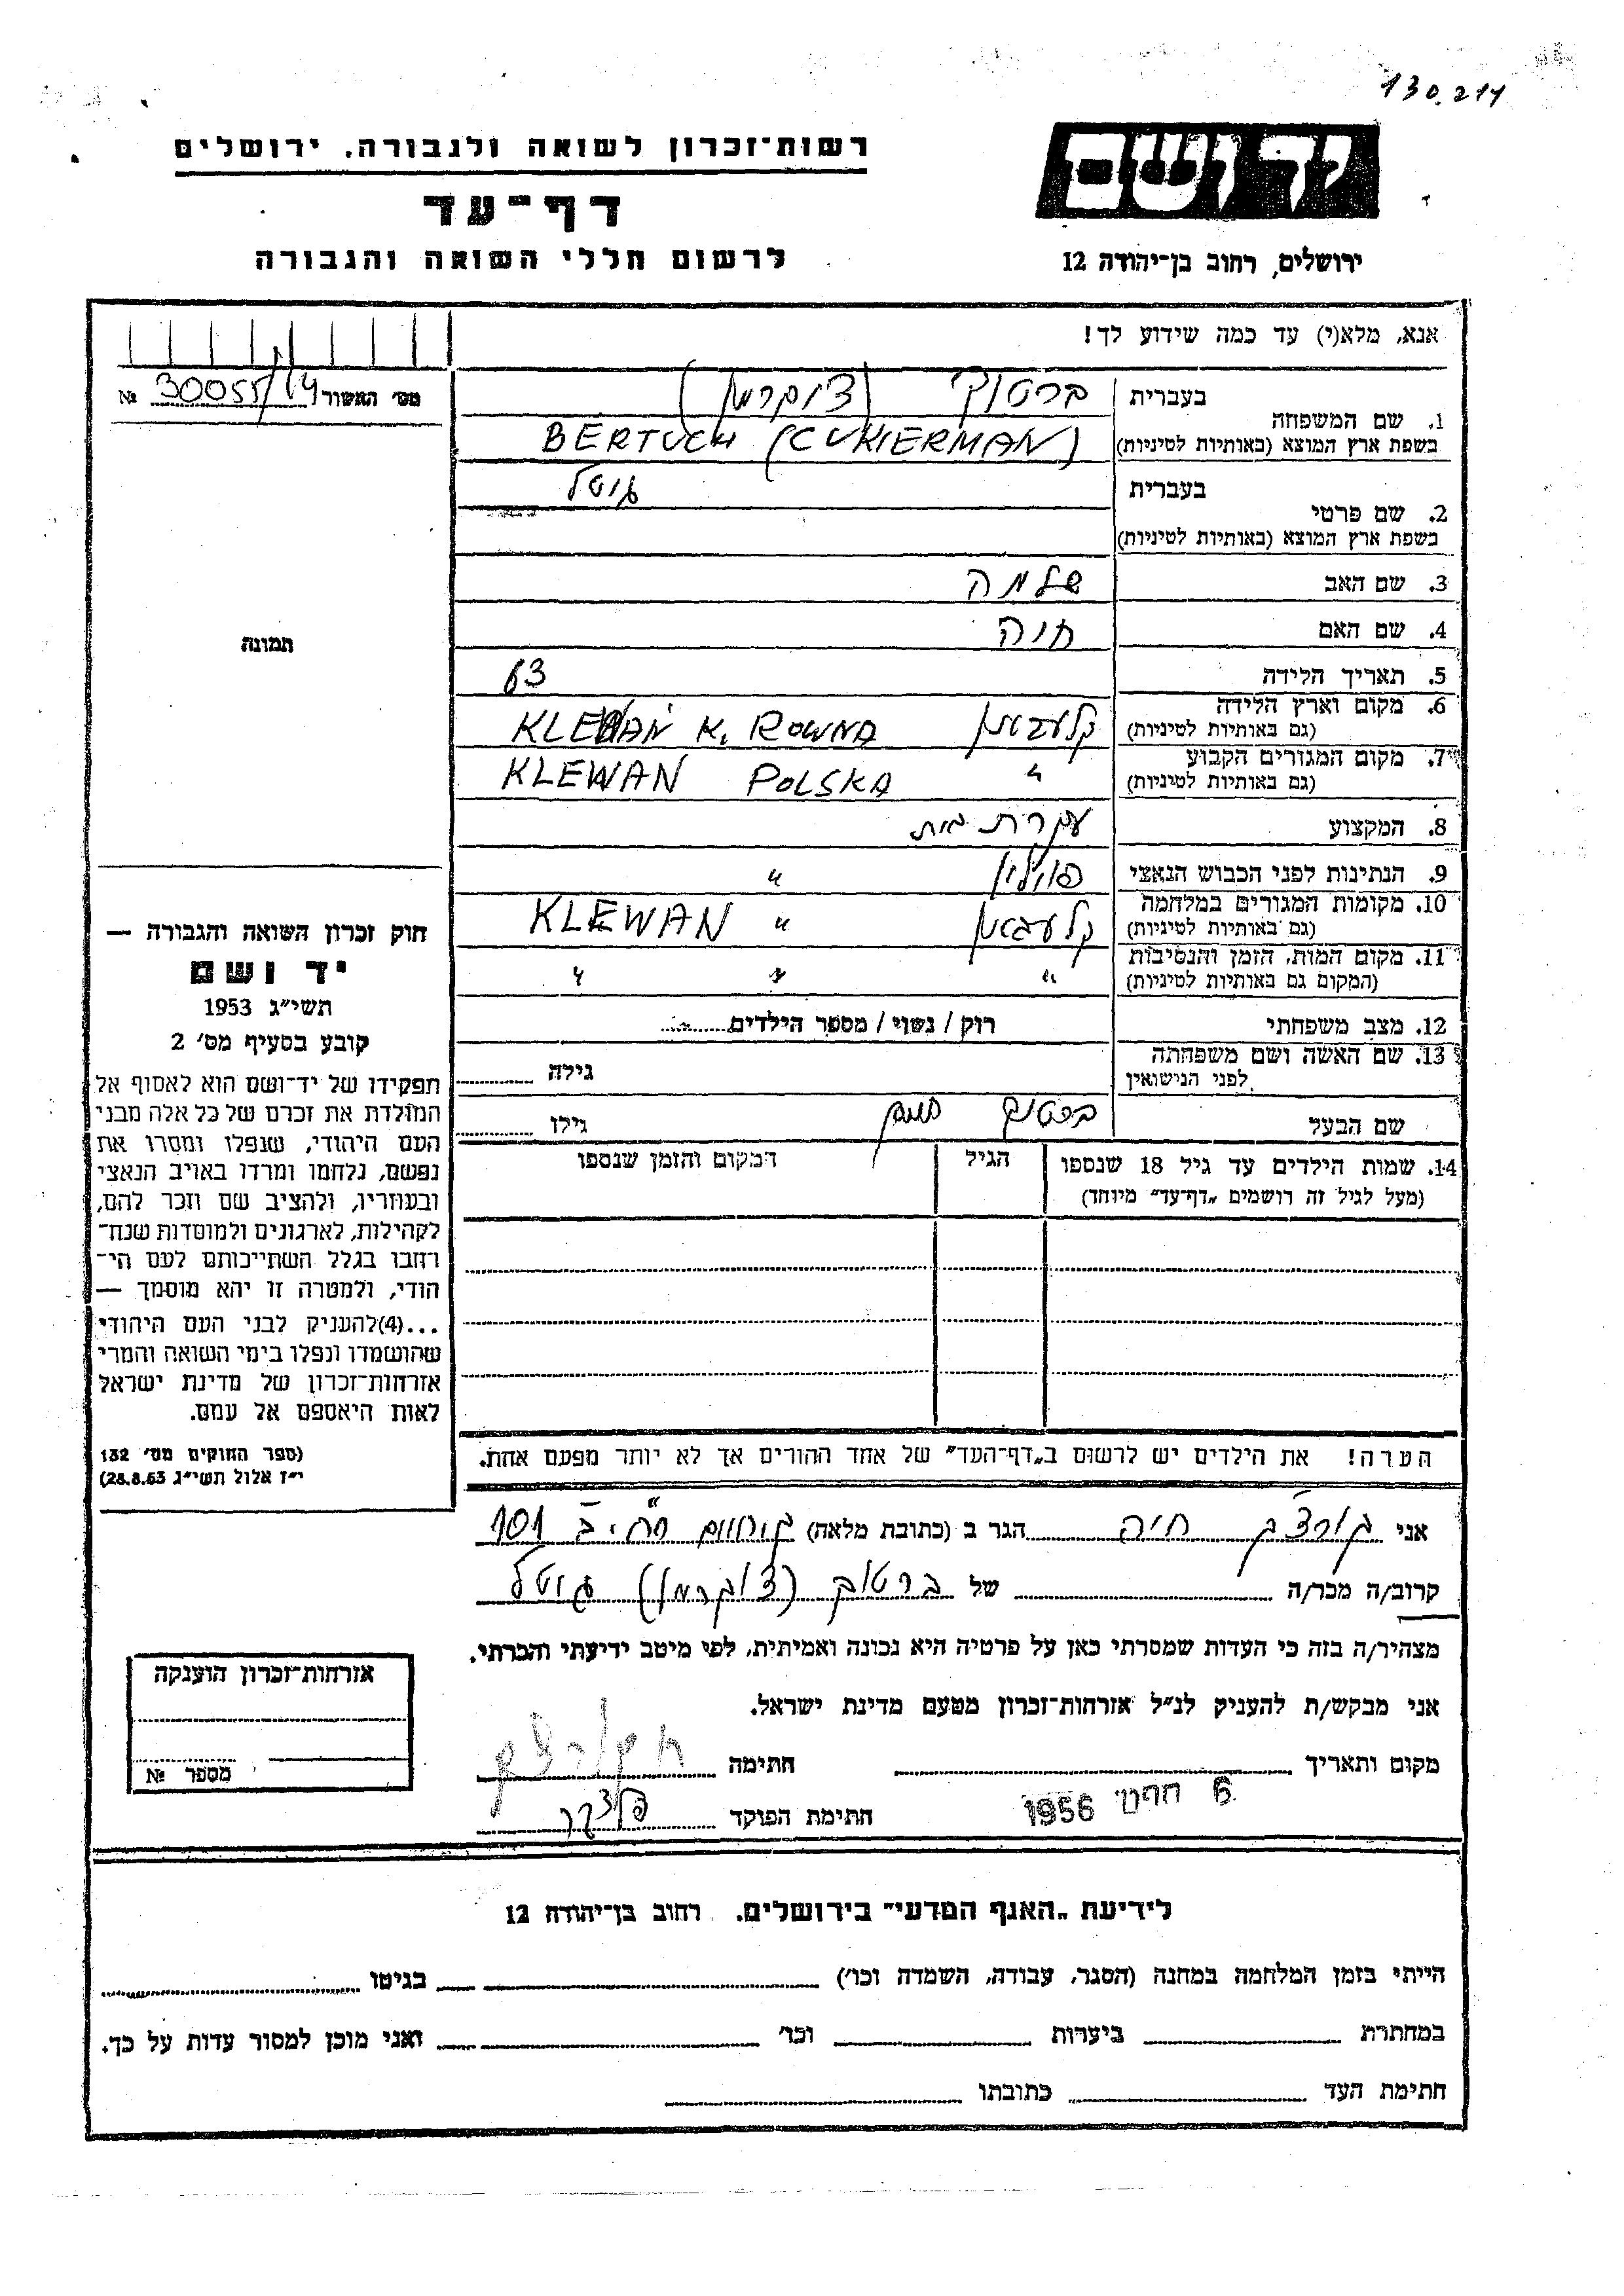 130.211
יד ושם
רשות־זכרון לשואה ולגבורה, ירושלים
דף־עד
לרשום חללי השואה והגבורה
ירושלים, רחוב בן־יהודה 12
אנא, מלא(י) עד כמה שידוע לך!
מס׳ האשור 30055/14 №
1. שם המשפחה
בעברית ברטוך (צוקרמן)
בשפת ארץ המוצא (באותיות לטיניות) BERTUCH (CUKIERMAN)
2. שם פרטי
בעברית גיטל
בשפת ארץ המוצא (באותיות לטיניות)
3. שם האב שלמה
4. שם האם חוה
5. תאריך הלידה 63
6. מקום וארץ הלידה קלעבאן KLEWAN K. ROWNA
(גם באותיות לטיניות)
7. מקום המגורים הקבוע " KLEWAN POLSKA
(גם באותיות לטיניות)
8. המקצוע עקרת בית
9. הנתינות לפני הכבוש הנאצי פוילין "
10. מקומות המגורים במלחמה קלעבאן " KLEWAN
(גם באותיות לטיניות)
11. מקום המות, הזמן והנסיבות " " "
(המקום גם באותיות לטיניות)
12. מצב משפחתי רוק / נשוי / מספר הילדים
13. שם האשה ושם משפחתה
לפני הנישואין גילה
שם הבעל ברטוך גילו
14. שמות הילדים עד גיל 18 שנספו הגיל המקום והזמן שנספו
(מעל לגיל זה רושמים „דף־עד" מיוחד)
הערה! את הילדים יש לרשום ב„דף־העד" של אחד ההורים אך לא יותר מפעם אחת.
תמונה
חוק זכרון השואה והגבורה —
יד ושם
תשי״ג 1953
קובע בסעיף מס׳ 2
תפקידו של יד־ושם הוא לאסוף אל
המולדת את זכרם של כל אלה מבני
העם היהודי, שנפלו ומסרו את
נפשם, נלחמו ומרדו באויב הנאצי
ובעוזריו, ולהציב שם וזכר להם,
לקהילות, לארגונים ולמוסדות שנח־
רבו בגלל השתייכותם לעם הי־
הודי, ולמטרה זו יהא מוסמך —
...(4)להעניק לבני העם היהודי
שהושמדו ונפלו בימי השואה והמרי
אזרחות־זכרון של מדינת ישראל
לאות היאספם אל עמם.
(ספר החוקים מס׳ 132
י״ז אלול תשי״ג 28.8.53)
אני גורצק חיה הגר ב (כתובת מלאה) 101
קרוב/ה מכר/ה של ברטוך (צוקרמן) גיטל
מצהיר/ה בזה כי העדות שמסרתי כאן על פרטיה היא נכונה ואמיתית, לפי מיטב ידיעתי והכרתי.
אני מבקש/ת להעניק לנ״ל אזרחות־זכרון מטעם מדינת ישראל.
מקום ותאריך חתימה
6 1956 חתימת הפוקד
אזרחות־זכרון הוענקה
מספר №
לידיעת „האגף המדעי" בירושלים. רחוב בן־יהודה 12
הייתי בזמן המלחמה במחנה (הסגר, עבודה, השמדה וכו׳) בגיטו
במחתרת ביערות וכו׳ ואני מוכן למסור עדות על כך.
חתימת העד כתובתו